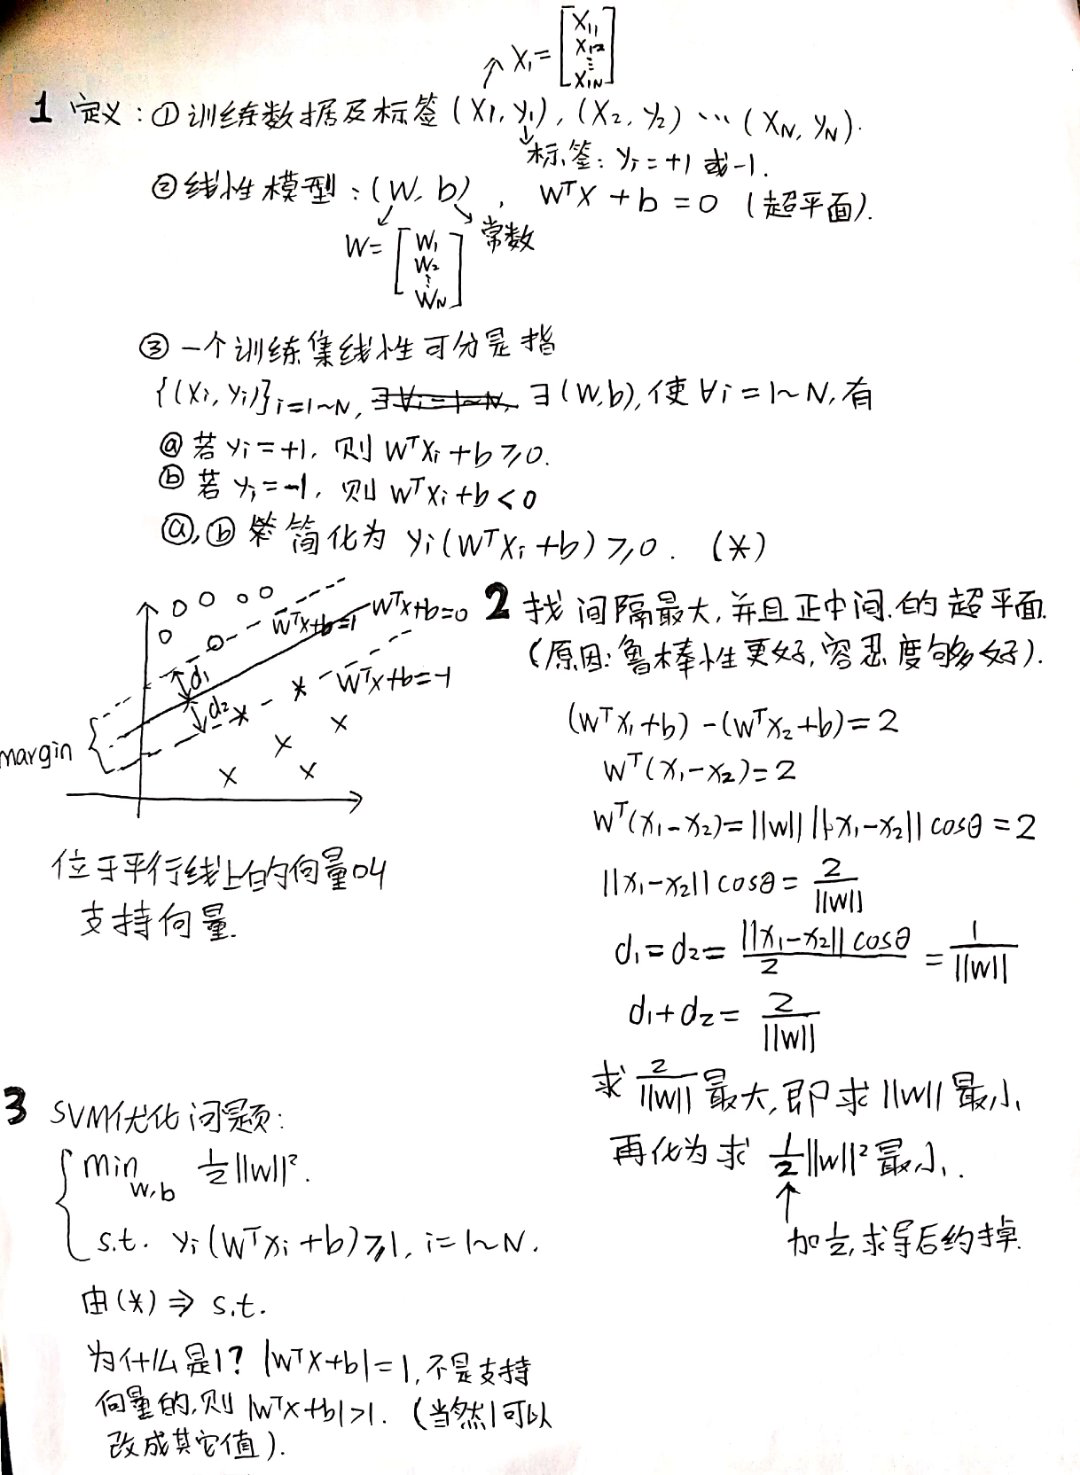 X₁=[X₁₁ X₁₂ ⋮ X₁N]
1 定义:①训练数据及标签(X₁, y₁), (X₂, y₂) … (XN, yN).
标签: yᵢ=+1 或-1.
②线性模型:(W, b), WᵀX+b=0 (超平面).
W=[W₁ W₂ ⋮ WN] 常数
③ 一个训练集线性可分是指
{(Xᵢ, yᵢ)}ᵢ₌₁~N, ∃(W,b), 使∀i=1~N, 有
ⓐ 若yᵢ=+1, 则WᵀXᵢ+b≥0.
ⓑ 若yᵢ=-1, 则WᵀXᵢ+b<0
ⓐ,ⓑ 简化为 yᵢ(WᵀXᵢ+b)≥0. (*)
WᵀX+b=1
WᵀX+b=0
WᵀX+b=-1
d₁
d₂
margin
位于平行线上的向量叫
支持向量.
2 找间隔最大,并且正中间的超平面.
(原因:鲁棒性更好,容忍度够好).
(WᵀX₁+b)-(WᵀX₂+b)=2
Wᵀ(X₁-X₂)=2
Wᵀ(X₁-X₂)=||W|| ||X₁-X₂|| cosθ=2
||X₁-X₂|| cosθ=2/||W||
d₁=d₂=||X₁-X₂|| cosθ/2=1/||W||
d₁+d₂=2/||W||
求 2/||W|| 最大,即求||W||最小
再化为求 ½||W||² 最小.
加½,求导后约掉.
3 SVM优化问题:
min W,b ½||W||².
s.t. yᵢ(WᵀXᵢ+b)≥1, i=1~N.
由(*)⇒ s.t.
为什么是1? |WᵀX+b|=1,不是支持
向量的,则|WᵀX+b|>1. (当然1可以
改成其它值).